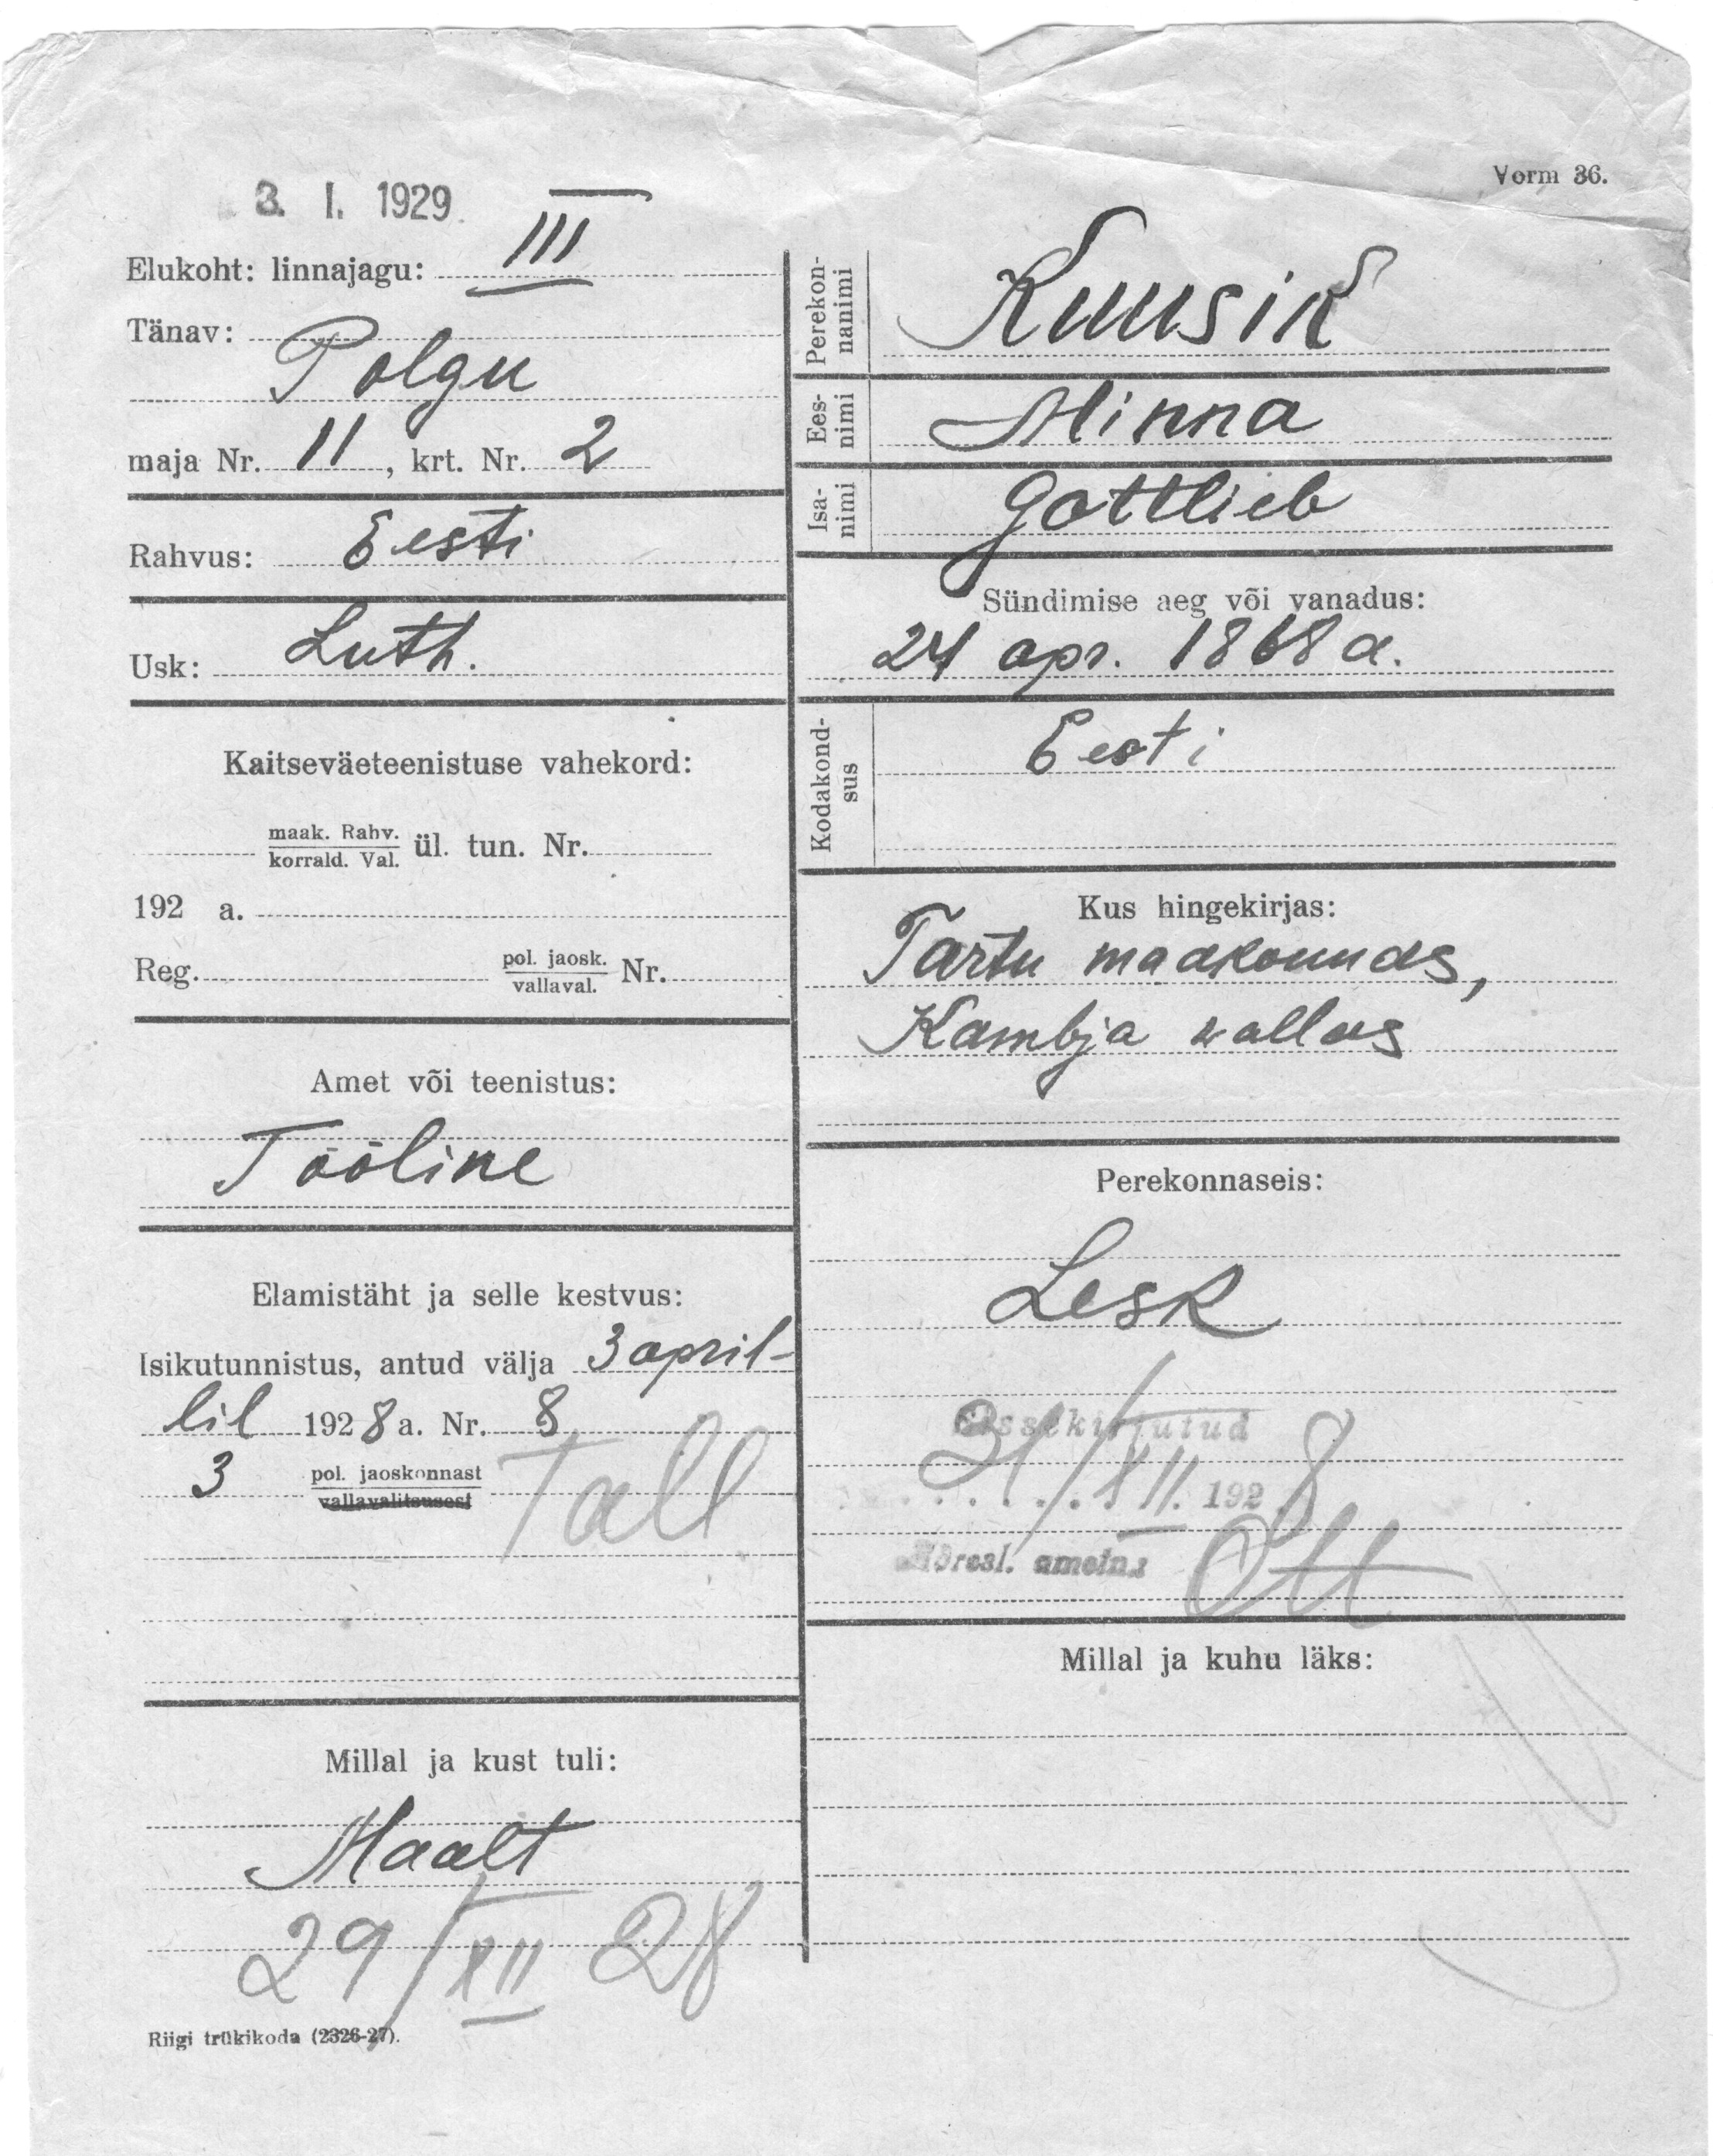 Vorm 36.
3. I. 1929.
Elukoht: linnajagu: III
Tänav:
Polgu
maja Nr. 11, krt. Nr. 2
Rahvus: Eesti
Usk: Luth.
Kaitseväeteenistuse vahekord:
maak. Rahv.
korrald. Val.
ül. tun. Nr.
192 a.
Reg.
pol. jaosk.
vallaval.
Nr.
Amet või teenistus:
Tööline
Elamistäht ja selle kestvus:
Isikutunnistus, antud välja 3 april-
lil 1928 a. Nr. 8
3 pol. jaoskonnast
vallavalitsusest
Tall
Millal ja kust tuli:
Maalt
29/XII 28
Riigi trükikoda (2326-27).
Perekon-
nanimi
Kuusik
Ees-
nimi
Minna
Isa-
nimi
Gottlieb
Sündimise aeg või vanadus:
24 apr. 1868 a.
Kodakond-
sus
Eesti
Kus hingekirjas:
Tartu maakonnas,
Kambja wallas
Perekonnaseis:
Lesk
Sissekirjutud
31/XII. 1928
ametn.
Ott
Millal ja kuhu läks: